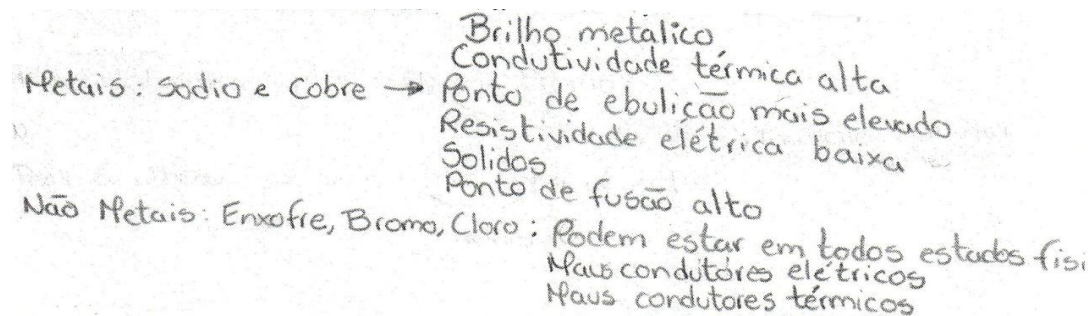 Brilho metalico
Condutividade térmica alta
Metais: Sodio e Cobre → Ponto de ebulição mais elevado
Resistividade elétrica baixa
Solidos
Ponto de fusão alto
Não Metais: Enxofre, Bromo, Cloro: Podem estar em todos estados fisi
Maus condutores elétricos
Maus condutores térmicos